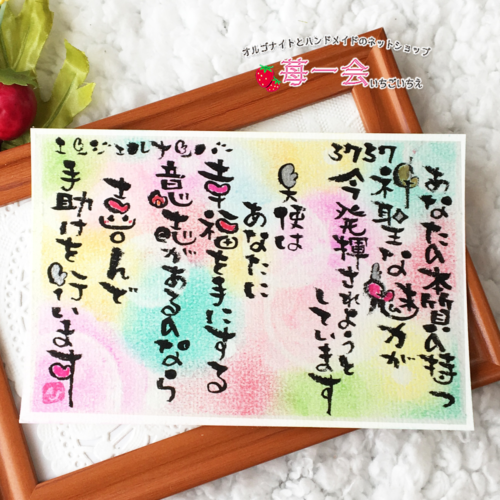 オルゴナイトとハンドメイドのネットショップ
苺一会 いちごいちえ
エンジェルナンバー
3737
あなたの本質の持つ
神聖な魅力が
今発揮されようと
しています
天使は
あなたに
幸福を手にする
意志があるのなら
喜んで
手助けを行います